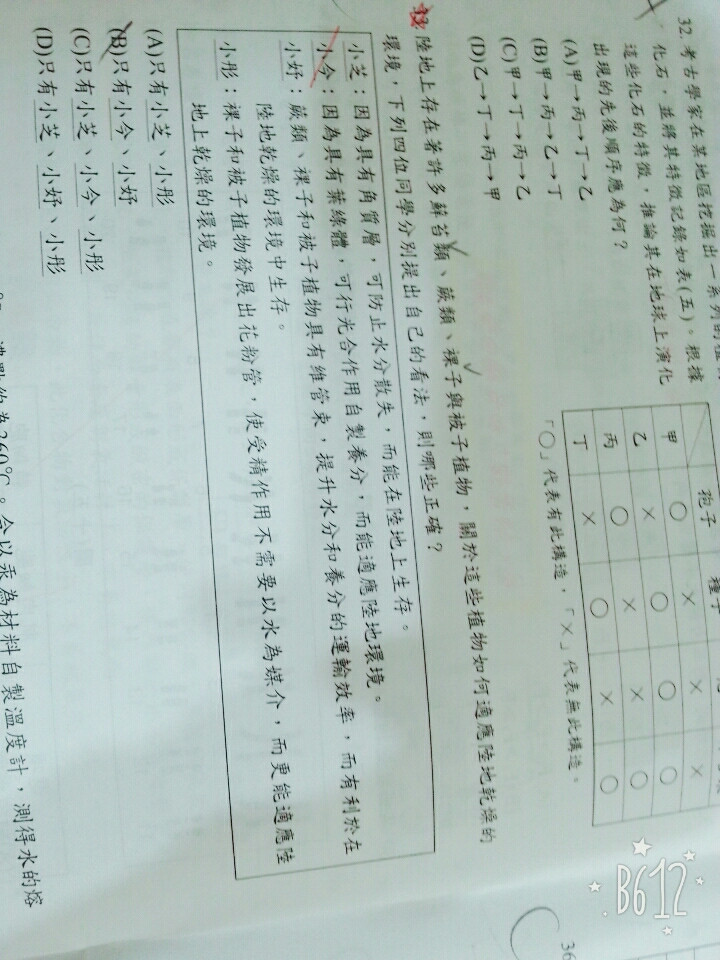 32. 考古學家在某地區挖掘出一系列的
化石，並將其特徵記錄如表(五)。根據
這些化石的特徵，推論其在地球上演化
出現的先後順序應為何？
(A)甲→丙→丁→乙
(B)甲→丙→乙→丁
(C)甲→丁→丙→乙
(D)乙→丁→丙→甲
孢子 種子
甲 ○ × × ×
乙 × ○ ○ ○
丙 ○ × × ○
丁 × ○ × ○
「○」代表有此構造，「×」代表無此構造。
33. 陸地上存在著許多蘚苔類、蕨類、裸子與被子植物，關於這些植物如何適應陸地乾燥的
環境，下列四位同學分別提出自己的看法，則哪些正確？
小芝：因為具有角質層，可防止水分散失，而能在陸地上生存。
小今：因為具有葉綠體，可行光合作用自製養分，而能適應陸地環境。
小妤：蕨類、裸子和被子植物具有維管束，提升水分和養分的運輸效率，而有利於在
陸地乾燥的環境中生存。
小彤：裸子和被子植物發展出花粉管，使受精作用不需要以水為媒介，而更能適應陸
地上乾燥的環境。
(A)只有小芝、小彤
(B)只有小今、小妤
(C)只有小芝、小今、小彤
(D)只有小芝、小妤、小彤
沸點約為360℃。今以汞為材料自製溫度計，測得水的熔
36
B612